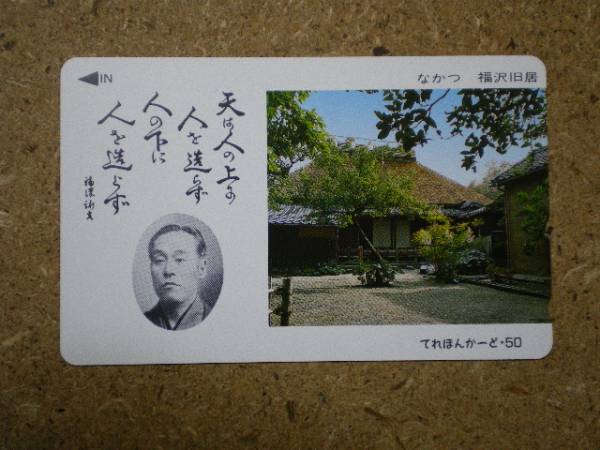 ◀IN
なかつ　福沢旧居
天は人の上に
人を造らず
人の下に
人を造らず
福澤諭吉
てれほんかーど・50